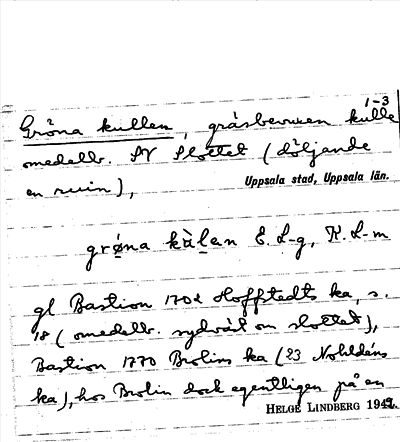 1-3
Gröna kullen, gräsbevuxen kulle
omedelb. SV Slottet (döljande
en ruin),
Uppsala stad, Uppsala län.
grøna kùlen E. L-g, K. L-m
gl Bastion 1702 Hoffstedts ka, s.
18 (omedelb. sydväst om slottet),
Bastion 1770 Brolins ka (23 Nohldéns
ka), hos Brolin dock egentligen på en
HELGE LINDBERG 1942.